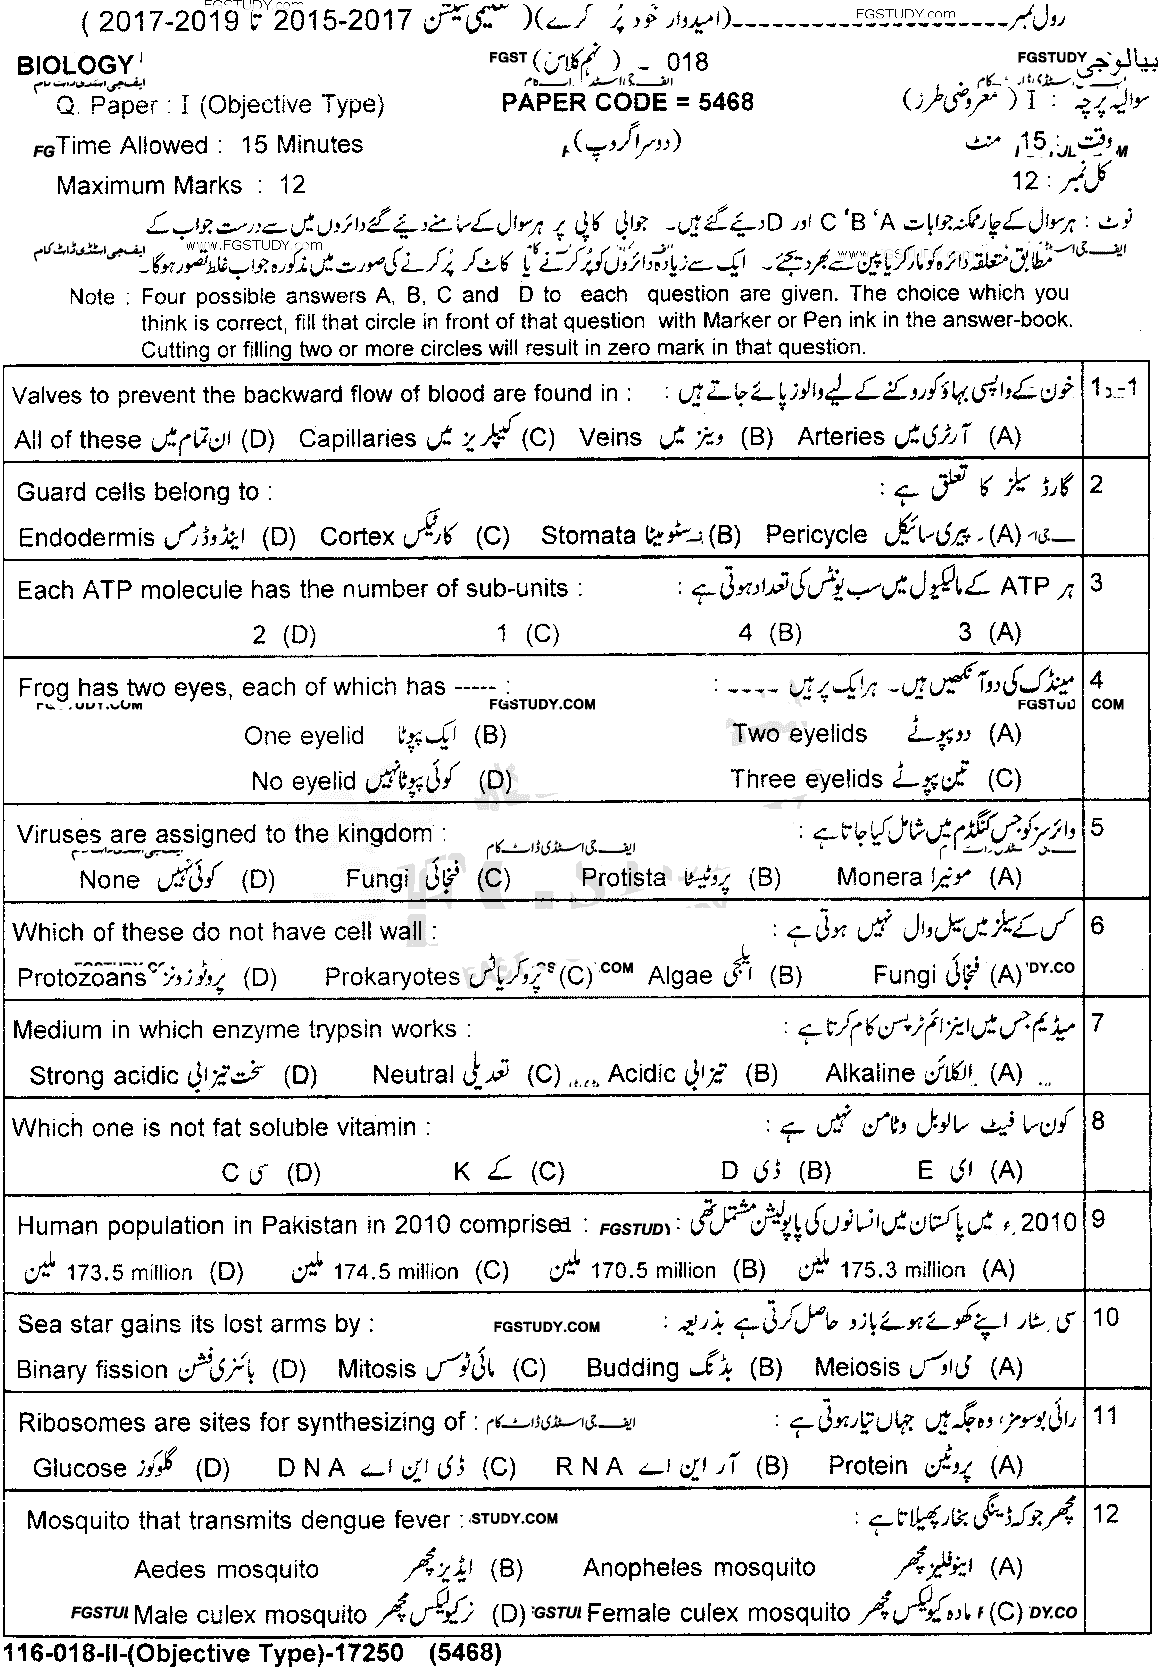 رول نمبر ---------------------(امیدوار خود پُر کرے) (تعلیمی سیشن 2017-2015 تا 2019-2017)
FGSTUDY.com FGSTUDY.com
BIOLOGY FGST (نہم کلاس) - 018 FGSTUDY بیالوجی
Q. Paper : I (Objective Type) PAPER CODE = 5468 سوالیہ پرچہ : I (معروضی طرز)
FG Time Allowed : 15 Minutes (دوسرا گروپ) وقت : 15 منٹ
Maximum Marks : 12 کل نمبر : 12
نوٹ : ہر سوال کے چار ممکنہ جوابات A ،B ،C اور D دیئے گئے ہیں۔ جوابی کاپی پر ہر سوال کے سامنے دیئے گئے دائروں میں سے درست جواب کے
www.FGSTUDY.com
ایف جی اسٹڈی ڈاٹ کام مطابق متعلقہ دائرہ کو مارکر یا پین سے بھر دیجئے۔ ایک سے زیادہ دائروں کو پُر کرنے یا کاٹ کر پُر کرنے کی صورت میں مذکورہ جواب غلط تصور ہوگا۔
Note : Four possible answers A, B, C and D to each question are given. The choice which you
think is correct, fill that circle in front of that question with Marker or Pen ink in the answer-book.
Cutting or filling two or more circles will result in zero mark in that question.
Valves to prevent the backward flow of blood are found in : خون کے واپسی بہاؤ کو روکنے کے لیے والوز پائے جاتے ہیں : 1-1
All of these ان تمام میں (D) Capillaries کیپلریز میں (C) Veins وینز میں (B) Arteries آرٹری میں (A)
Guard cells belong to : گارڈ سیلز کا تعلق ہے : 2
Endodermis اینڈوڈرمس (D) Cortex کارٹیکس (C) Stomata سٹومیٹا (B) Pericycle پیری سائیکل (A)
Each ATP molecule has the number of sub-units : ہر ATP کے مالیکیول میں سب یونٹس کی تعداد ہوتی ہے : 3
2 (D) 1 (C) 4 (B) 3 (A)
Frog has two eyes, each of which has ----- : مینڈک کی دو آنکھیں ہیں۔ ہر ایک پر ہیں ---- : 4
FGSTUDY.COM FGSTUD COM
One eyelid ایک پپوٹا (B) Two eyelids دو پپوٹے (A)
No eyelid کوئی پپوٹا نہیں (D) Three eyelids تین پپوٹے (C)
Viruses are assigned to the kingdom : وائرسز کو جس کنگڈم میں شامل کیا جاتا ہے : 5
ایف جی اسٹڈی ڈاٹ کام
None کوئی نہیں (D) Fungi فنجائی (C) Protista پروٹیسٹا (B) Monera مونیرا (A)
Which of these do not have cell wall : کس کے سیلز میں سیل وال نہیں ہوتی ہے : 6
Protozoans پروٹوزونز (D) Prokaryotes پروکریاٹس (C) COM Algae ایلجی (B) Fungi فنجائی (A) DY.CO
Medium in which enzyme trypsin works : میڈیم جس میں اینزائم ٹرپسن کام کرتا ہے : 7
Strong acidic سخت تیزابی (D) Neutral تعدیلی (C) Acidic تیزابی (B) Alkaline الکلائن (A)
Which one is not fat soluble vitamin : کون سا فیٹ سالوبل وٹامن نہیں ہے : 8
C سی (D) K کے (C) D ڈی (B) E ای (A)
Human population in Pakistan in 2010 comprised : FGSTUDY 2010ء میں پاکستان میں انسانوں کی پاپولیشن مشتمل تھی : 9
173.5 million ملین (D) 174.5 million ملین (C) 170.5 million ملین (B) 175.3 million ملین (A)
Sea star gains its lost arms by : FGSTUDY.COM سی سٹار اپنے کھوئے ہوئے بازو حاصل کرتی ہے بذریعہ : 10
Binary fission بائنری فشن (D) Mitosis مائی ٹوسس (C) Budding بڈنگ (B) Meiosis می اوسس (A)
Ribosomes are sites for synthesizing of : ایف جی اسٹڈی ڈاٹ کام رائی بوسومز، وہ جگہ ہیں جہاں تیار ہوتی ہے : 11
Glucose گلوکوز (D) D N A ڈی این اے (C) R N A آر این اے (B) Protein پروٹین (A)
Mosquito that transmits dengue fever : STUDY.COM مچھر جو کہ ڈینگی بخار پھیلاتا ہے : 12
Aedes mosquito ایڈیز مچھر (B) Anopheles mosquito اینوفلیز مچھر (A)
FGSTUI Male culex mosquito نر کیولیکس مچھر (D) FGSTUI Female culex mosquito مادہ کیولیکس مچھر (C) DY.CO
116-018-II-(Objective Type)-17250 (5468)